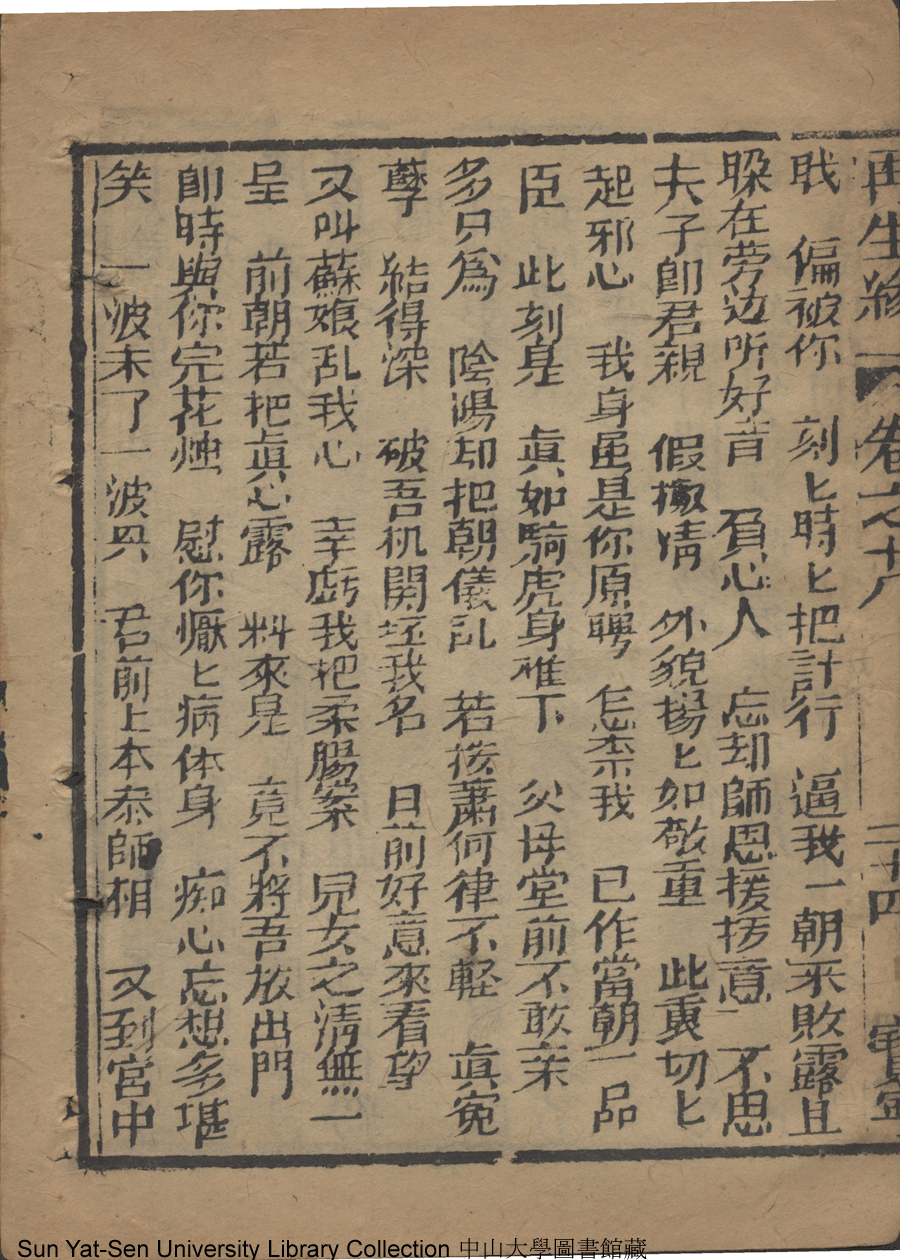 再生緣 卷之十八 二十四
戝 偏被你 刻匕時匕把計行 逼我一朝來敗露且
躱在旁边听好音 負心人 忘却師恩援抜意 不思
夫子卽君親 假撇情 外貌揚匕如敬重 此衷切匕
起邪心 我身虽是你原聘 怎柰我 已作當朝一品
臣 此刻是 眞如騎虎身难下 父母堂前不敢宋
多只爲 陰陽却把朝儀乱 若按蕭何律不軽 眞寃
孽 結得深 破吾机関坯我名 日前好意來看望
又叫蘇娘乱我心 幸虧我把柔腸案 兒女之淸無一
呈 前朝若把眞心露 料來是 竟不將吾放出門
卽時與你完花烛 慰你懨匕病体身 痴心忘想多堪
笑 一波未了一波兴 君前上本叅師相 又到宮中
Sun Yat-Sen University Library Collection 中山大學圖書館藏